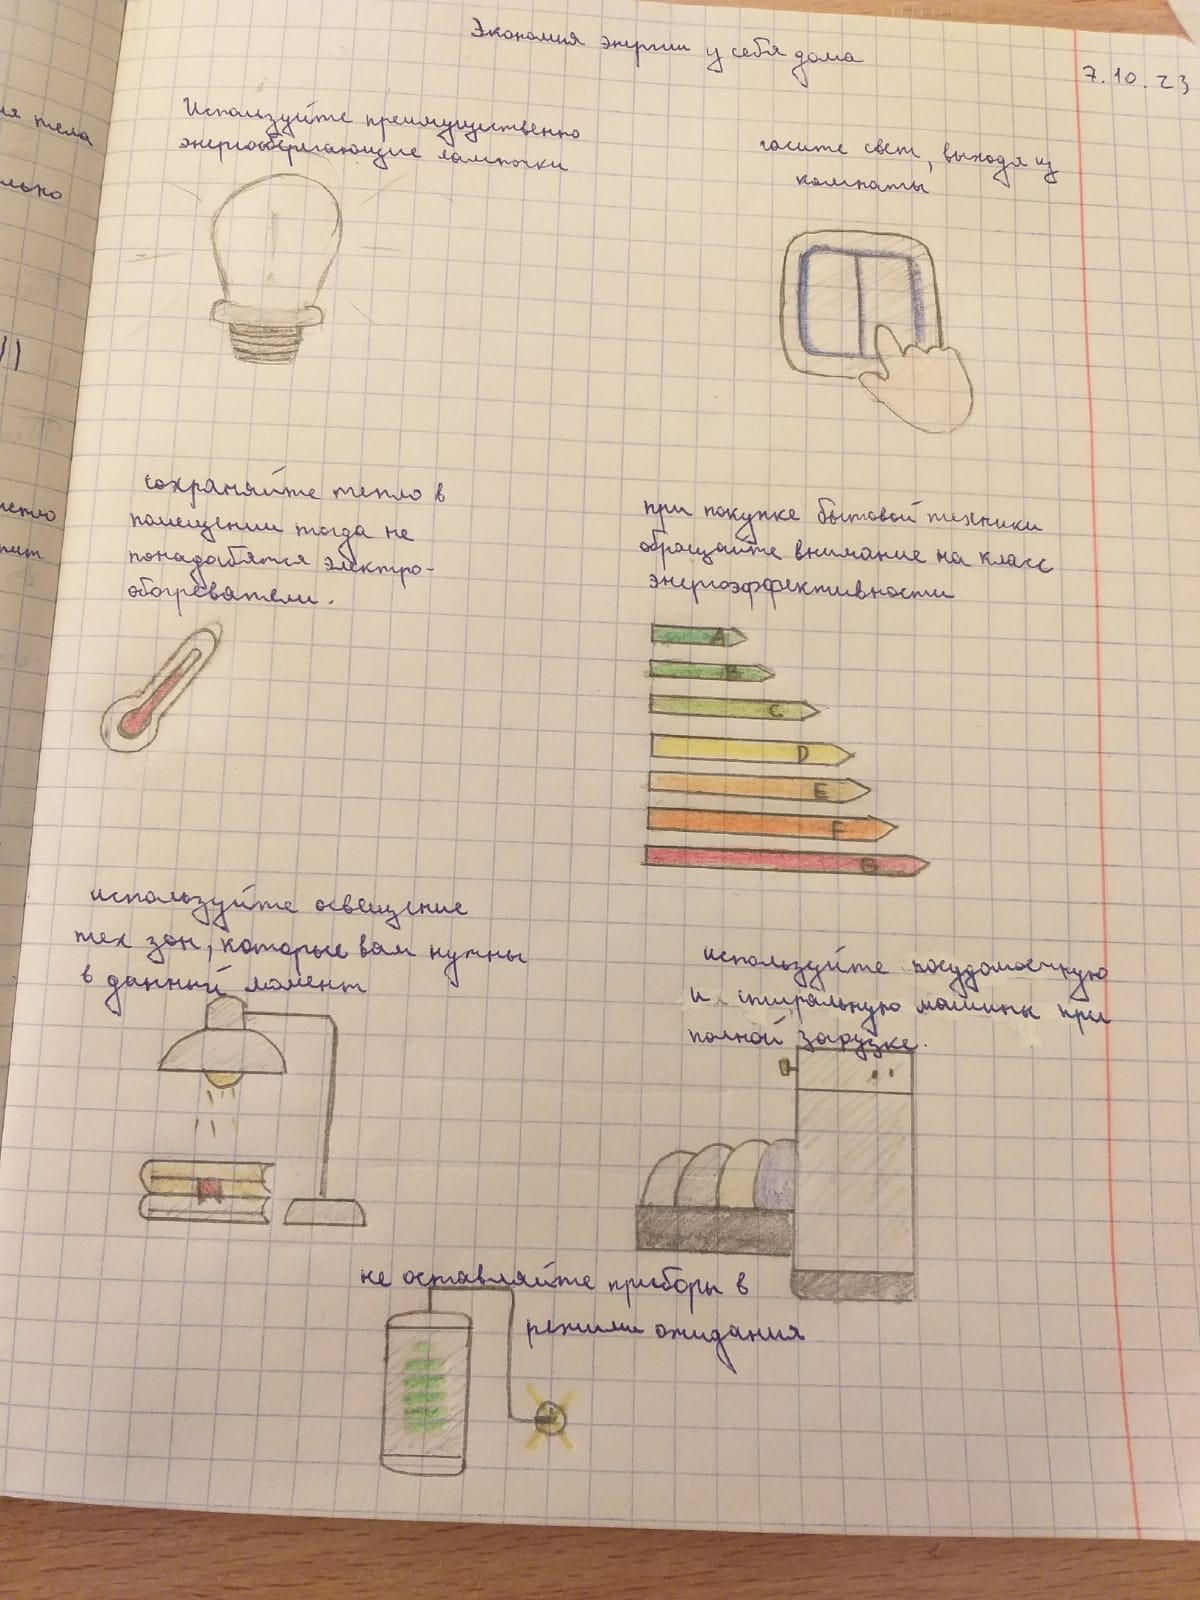 Экономия энергии у себя дома
7.10.23
Используйте преимущественно
энергосберегающие лампочки
гасите свет, выходя из
комнаты
сохраняйте тепло в
помещении тогда не
понадобятся электро-
обогреватели.
при покупке бытовой техники
обращайте внимание на класс
энергоэффективности
A
B
C
D
E
F
G
используйте освещение
тех зон, которые вам нужны
в данный момент
используйте посудомоечную
и стиральную машины при
полной загрузке.
не оставляйте приборы в
режими ожидания
тела